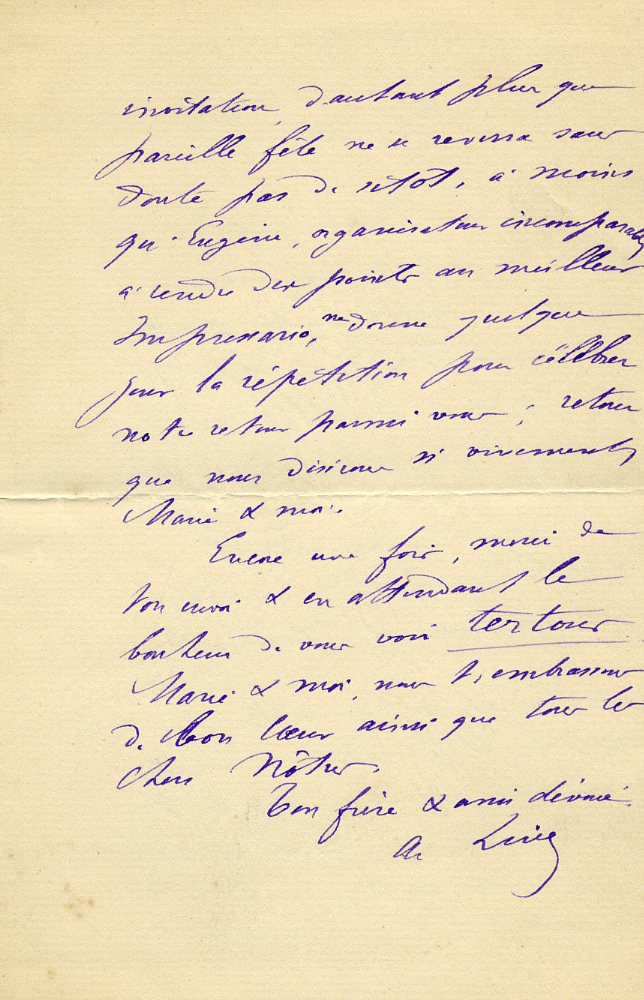 invitation, d'autant plus que
pareille fête ne se reverra sans
doute pas de sitôt, à moins
qu'Eugène, organisateur incomparable
à rendre des points au meilleur
Impressario, ne donne quelque
jour la répétition pour célébrer
notre retour parmi vous ; retour
que nous désirons si vivement,
Marie & moi.
Encore une fois, merci de
ton envoi & en attendant le
bonheur de vous voir
Marie & moi, nous t'embrassons
de bon cœur ainsi que tous les
chers Nôtres.
Ton frère & ami dévoué.